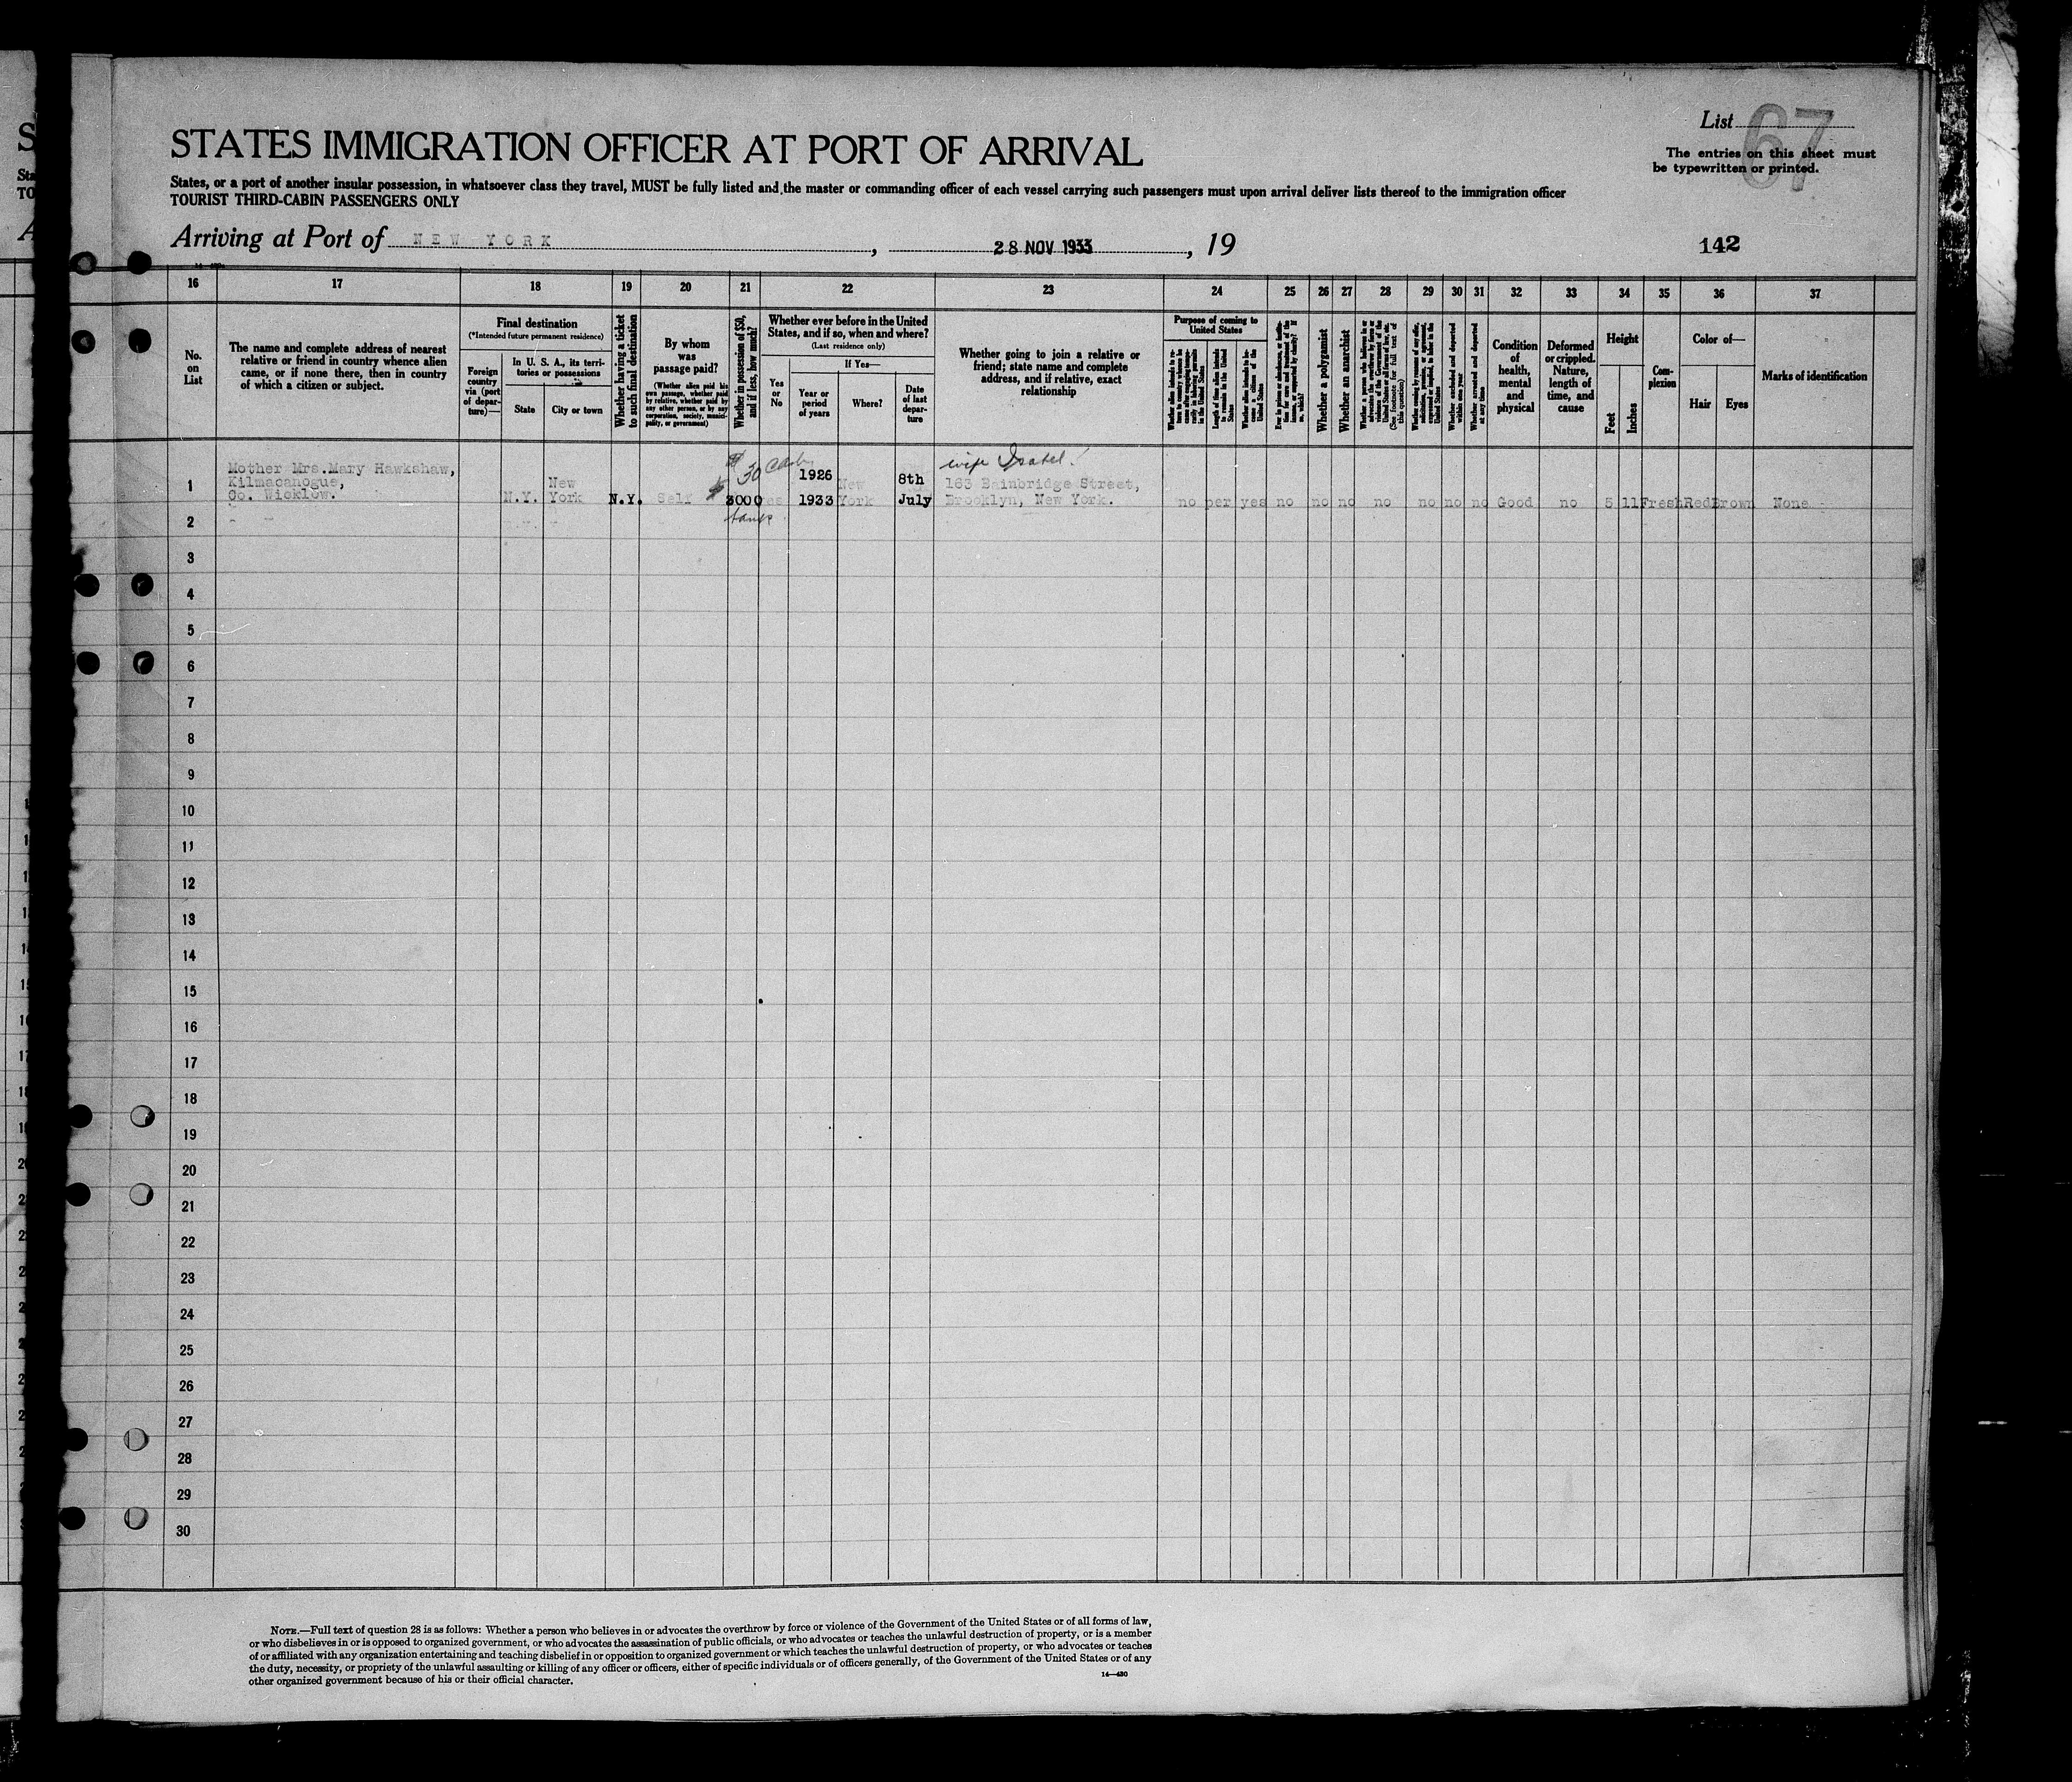 List 67
The entries on this sheet must
be typewritten or printed.
STATES IMMIGRATION OFFICER AT PORT OF ARRIVAL
States, or a port of another insular possession, in whatsoever class they travel, MUST be fully listed and the master or commanding officer of each vessel carrying such passengers must upon arrival deliver lists thereof to the immigration officer
TOURIST THIRD-CABIN PASSENGERS ONLY
Arriving at Port of NEW YORK, 28 NOV 1933, 19
142
16 17 18 19 20 21 22 23 24 25 26 27 28 29 30 31 32 33 34 35 36 37
No.
on
List
The name and complete address of nearest
relative or friend in country whence alien
came, or if none there, then in country
of which a citizen or subject.
Final destination
(*Intended future permanent residence)
Foreign
country
via (port
of depar-
ture)—
In U. S. A., its terri-
tories or possessions
State
City or town
Whether having a ticket
to such final destination
By whom
was
passage paid?
(Whether alien paid his
own passage, whether paid
by relative, whether paid by
any other person, or by any
corporation, society, munici-
pality, or government)
Whether in possession of $50,
and if less, how much?
Whether ever before in the United
States, and if so, when and where?
(Last residence only)
Yes
or
No
If Yes—
Year or
period
of years
Where?
Date
of last
depar-
ture
Whether going to join a relative or
friend; state name and complete
address, and if relative, exact
relationship
Purpose of coming to
United States
Length of time alien intends
to remain in the United
States
Whether alien intends to be-
come a citizen of the
United States
Whether a polygamist
Whether an anarchist
(See footnote for full text of
this question)
Whether excluded and deported
within one year
Whether arrested and deported
at any time
Condition
of
health,
mental
and
physical
Deformed
or crippled.
Nature,
length of
time, and
cause
Height
Feet
Inches
Com-
plexion
Color of—
Hair
Eyes
Marks of identification
wife Isabel
$30
1 Mother Mrs. Mary Hawkshaw,
Kilmacanogue,
Co. Wicklow.
N.Y.
New
York
N.Y. Self 3000 yes
1926
1933
New
York
8th
July
163 Bainbridge Street,
Brooklyn, New York.
no per yes no no no no no no no Good no 5 11 Fresh Red Brown None
2
3
4
5
6
7
8
9
10
11
12
13
14
15
16
17
18
19
20
21
22
23
24
25
26
27
28
29
30
NOTE.—Full text of question 28 is as follows: Whether a person who believes in or advocates the overthrow by force or violence of the Government of the United States or of all forms of law,
or who disbelieves in or is opposed to organized government, or who advocates the assassination of public officials, or who advocates or teaches the unlawful destruction of property, or is a member
of or affiliated with any organization entertaining and teaching disbelief in or opposition to organized government or which teaches the unlawful destruction of property, or who advocates or teaches
the duty, necessity, or propriety of the unlawful assaulting or killing of any officer or officers, either of specific individuals or of officers generally, of the Government of the United States or of any
other organized government because of his or their official character.
14—430